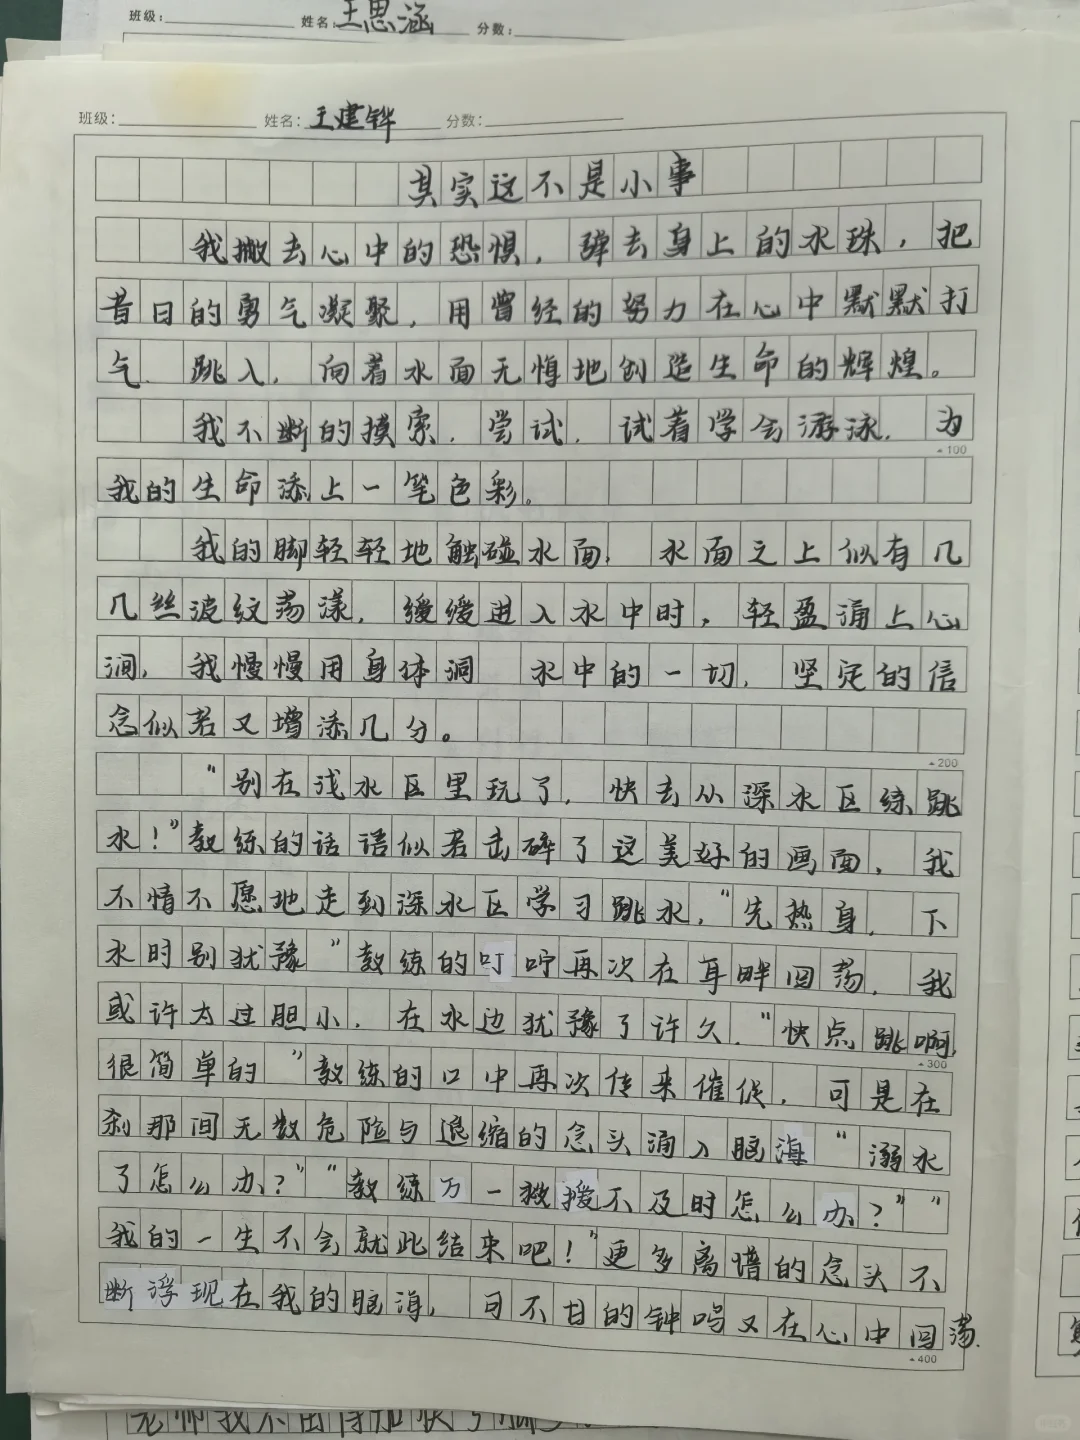 班级： 姓名：王思涵 分数：
班级： 姓名：王建铧 分数：
其实这不是小事
我撇去心中的恐惧，弹去身上的水珠，把
昔日的勇气凝聚，用曾经的努力在心中默默打
气.跳入，向着水面无惮地创造生命的辉煌。
我不断的摸索，尝试，试着学会游泳，为
100
我的生命添上一笔色彩。
我的脚轻轻地触碰水面，水面之上似有几
几丝波纹荡漾，缓缓进入水中时，轻盈涌上心
涧，我慢慢用身体洞 水中的一切，坚定的信
念似若又增添几分。
200
“别在浅水区里玩了，快去从深水区练跳
水！”教练的话语似若击碎了这美好的画面，我
不情不愿地走到深水区学习跳水，“先热身，下
水时别犹豫”教练的叮咛再次在耳畔回荡，我
或许太过胆小，在水边犹豫了许久，“快点跳啊，
300
很简单的”教练的口中再次传来催促，可是在
刹那间无数危险与退缩的念头涌入脑海“溺水
了怎么办？”“教练万一救援不及时怎么办？”“
我的一生不会就此结束吧！”更多离谱的念头不
断浮现在我的脑海，可不甘的钟鸣又在心中回荡.
400
老师我不由得加快了脚